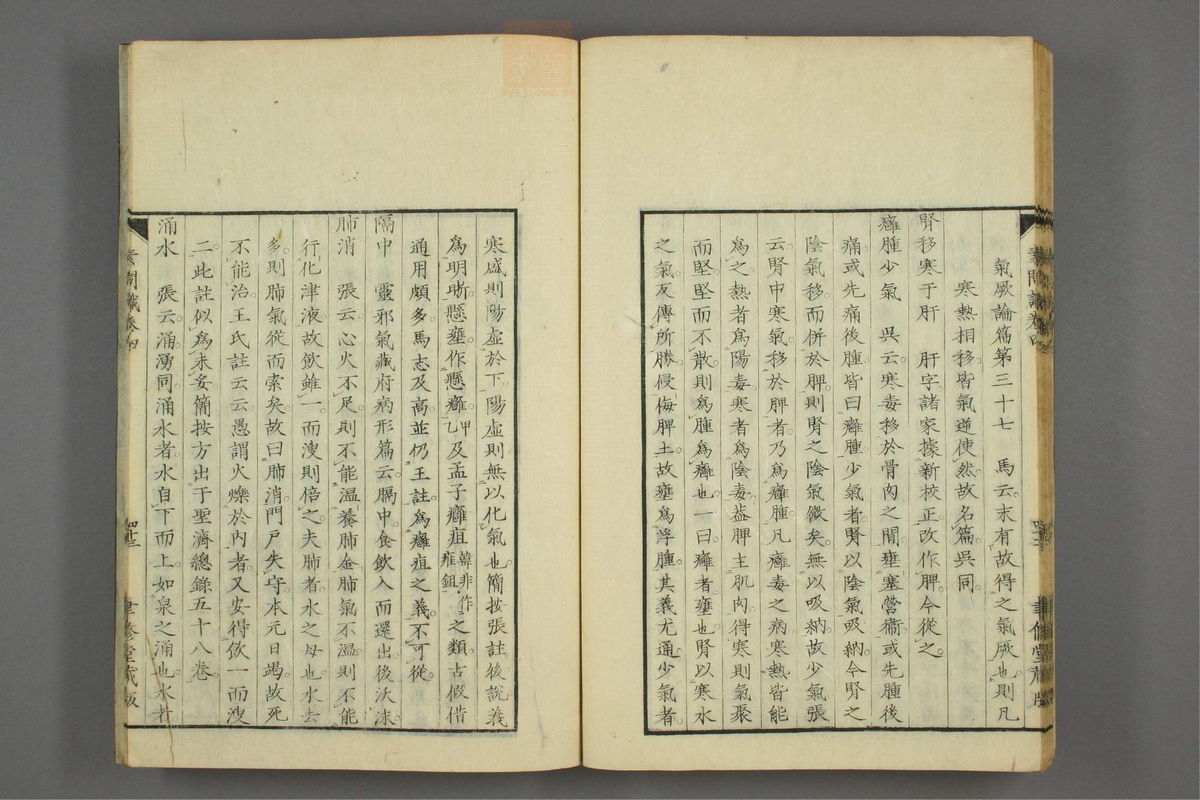 氣厥論篇第三十七　馬云末有故得之氣厥也則凡
寒熱相移皆氣逆使然故名篇吳同
腎移寒于肝　肝字諸家據新校正改作脾今從之
癰腫少氣　吳云寒毒移於骨肉之間壅塞營衞或先腫後
痛或先痛後腫皆曰癰腫少氣者腎以陰氣吸納今腎之
陰氣移而併於脾則腎之陰氣微矣無以吸納故少氣張
云腎中寒氣移於脾者乃爲癰腫凡癰毒之病寒熱皆能
爲之熱者爲陽毒寒者爲陰毒葢脾主肌肉得寒則氣聚
而堅堅而不散則爲腫爲癰也一曰癰者壅也腎以寒水
之氣反傳所勝侵侮脾土故壅爲浮腫其義尤通少氣者
寒盛則陽虛於下陽虛則無以化氣也簡按張註後說義
爲明晣懸壅作懸癰甲乙及孟子癰疽韓非作雍鉏之類古假借
通用頗多馬志及高並仍王註爲癰疽之義不可從
隔中　靈邪氣藏府病形篇云膈中食飲入而還出後沃沫
肺消　張云心火不足則不能溫養肺金肺氣不溫則不能
行化津液故飲雖一而溲則倍之夫肺者水之母也水去
多則肺氣從而索矣故曰肺消門戶失守本元日竭故死
不能治王氏註云云愚謂火爍於內者又安得飲一而溲
二此註似爲未妥簡按方出于聖濟總錄五十八卷
涌水　張云涌湧同涌水者水自下而上如泉之涌也水者
素問識卷四
四十三
聿修堂藏版